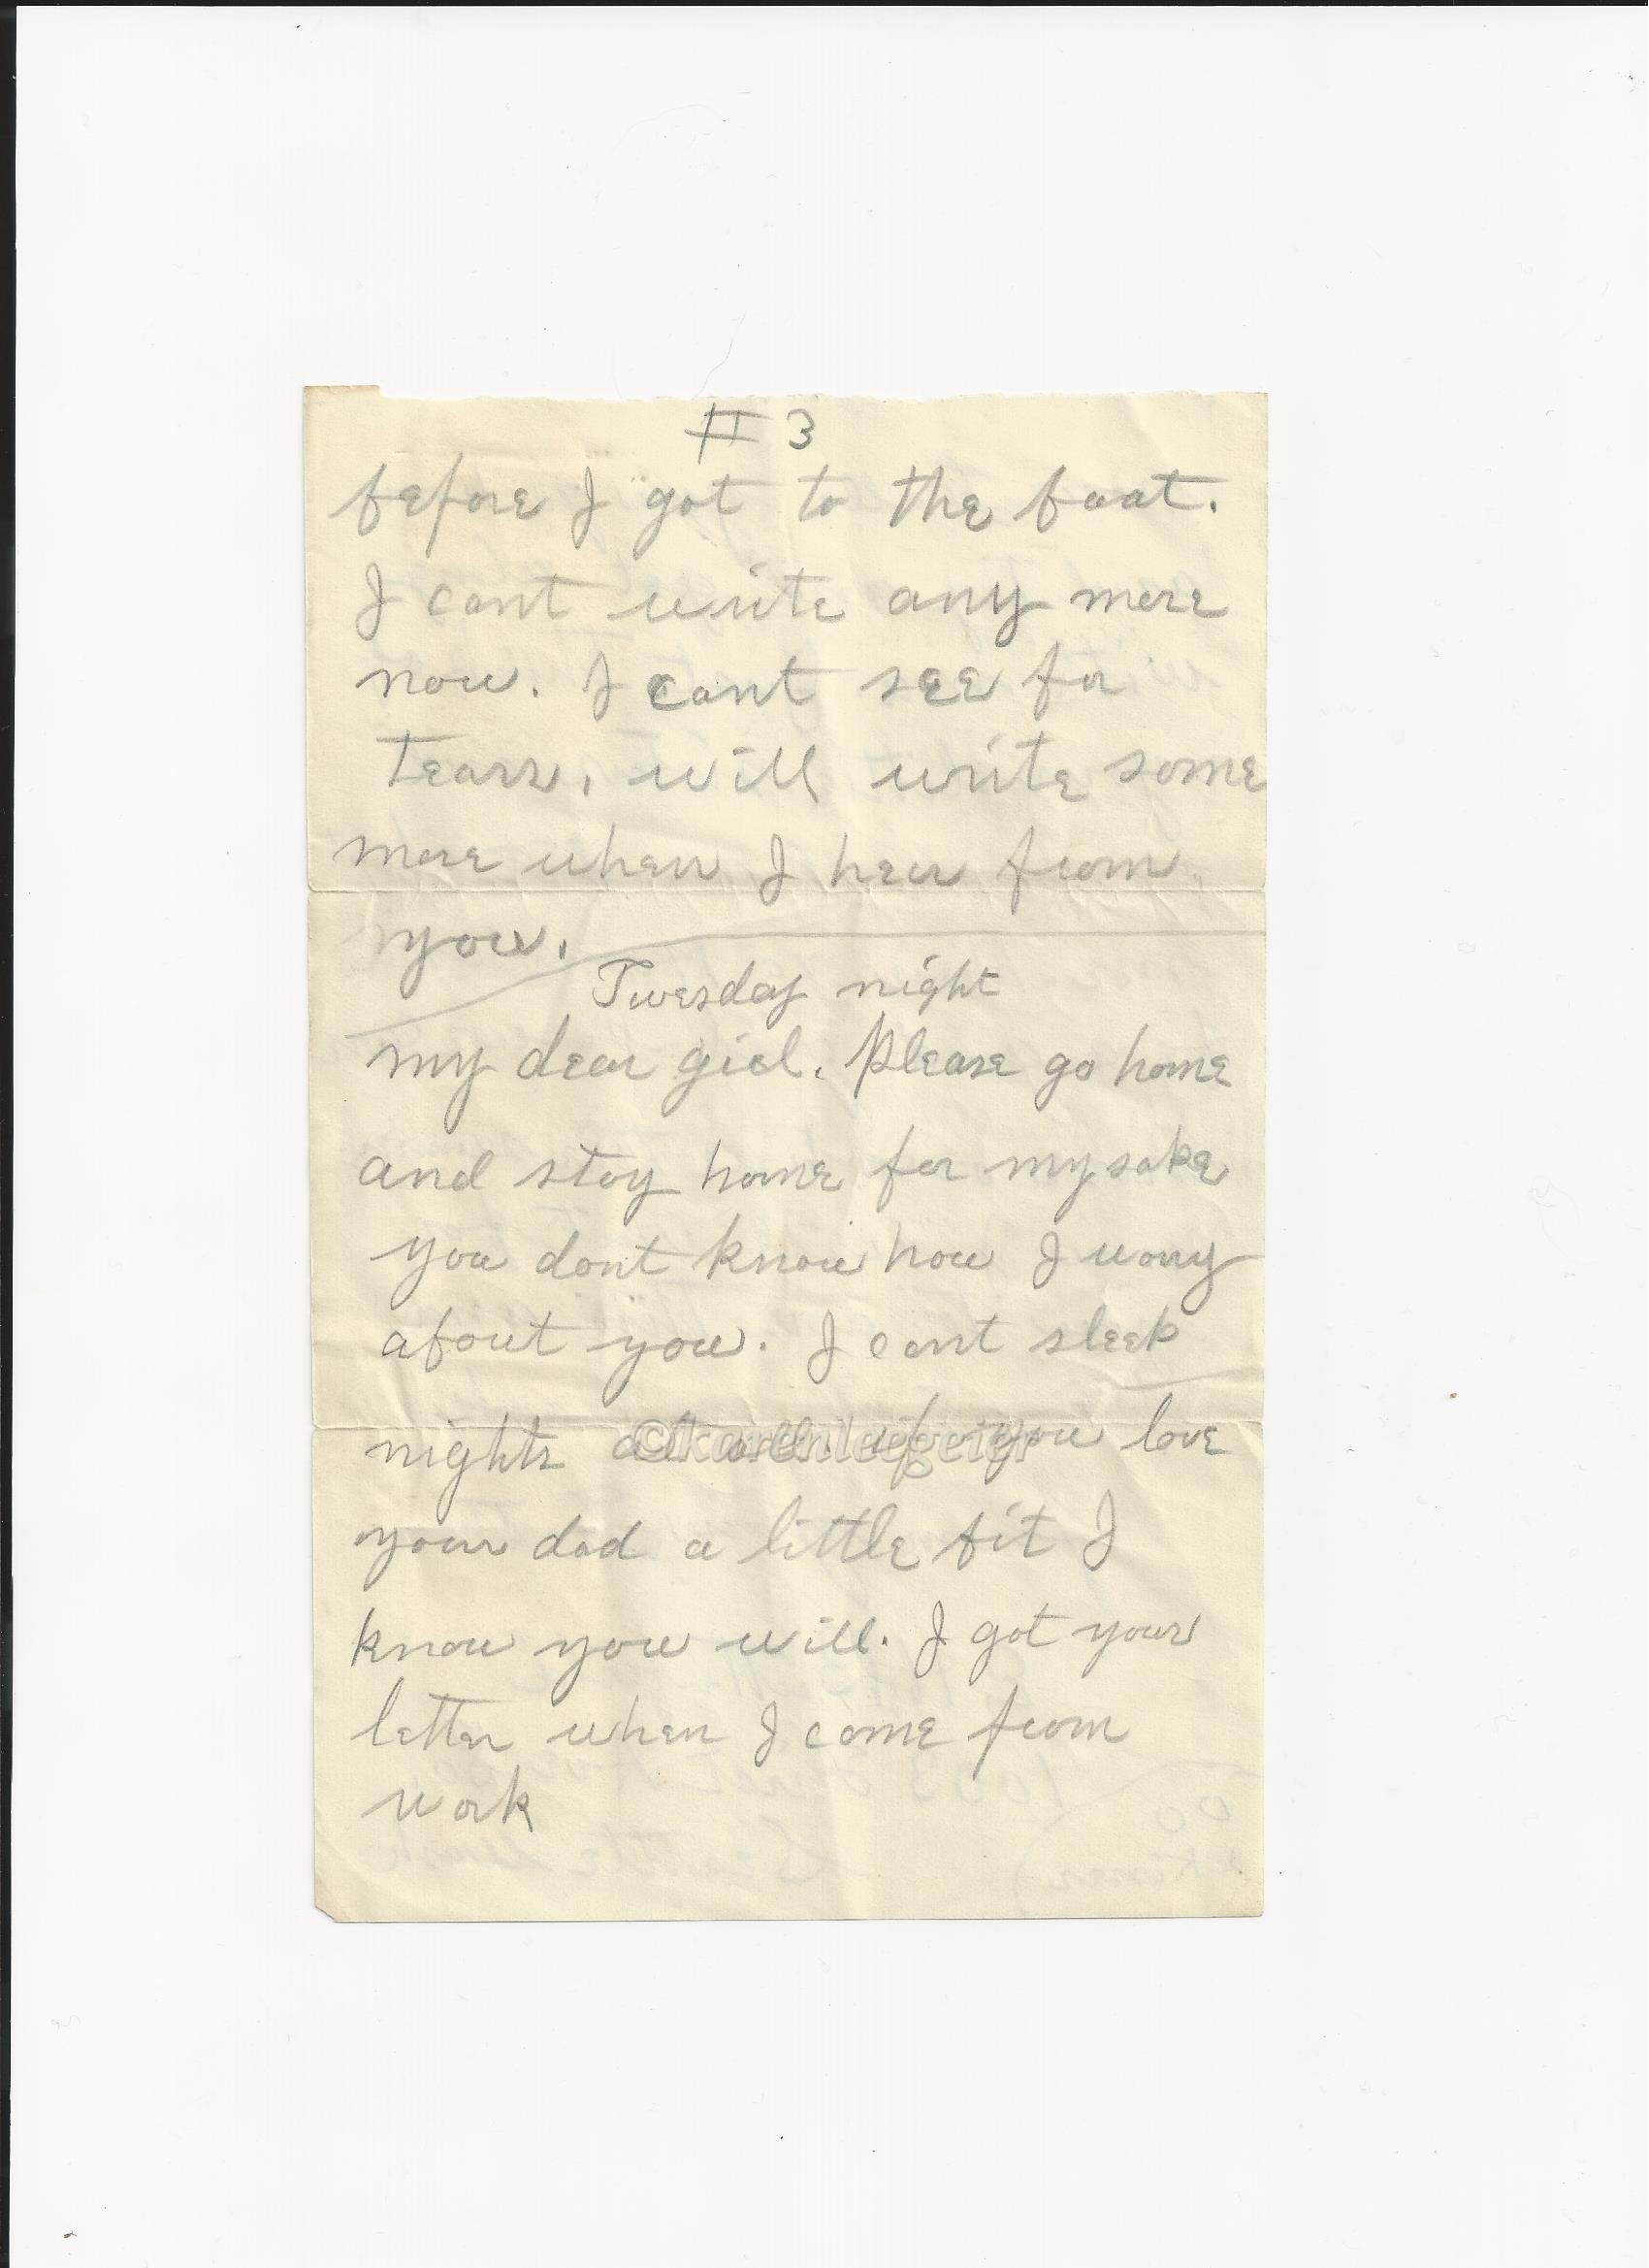 # 3
before I got to the boat.
I cant write any more
now. I cant see for
tears. will write some
more when I hear from
you.
Tuesday night
my dear girl. Please go home
and stay home for my sake
you dont know how I worry
about you. I cant sleep
nights at all. if you love
©karenleegeier
your dad a little bit I
know you will. I got your
letter when I come from
work